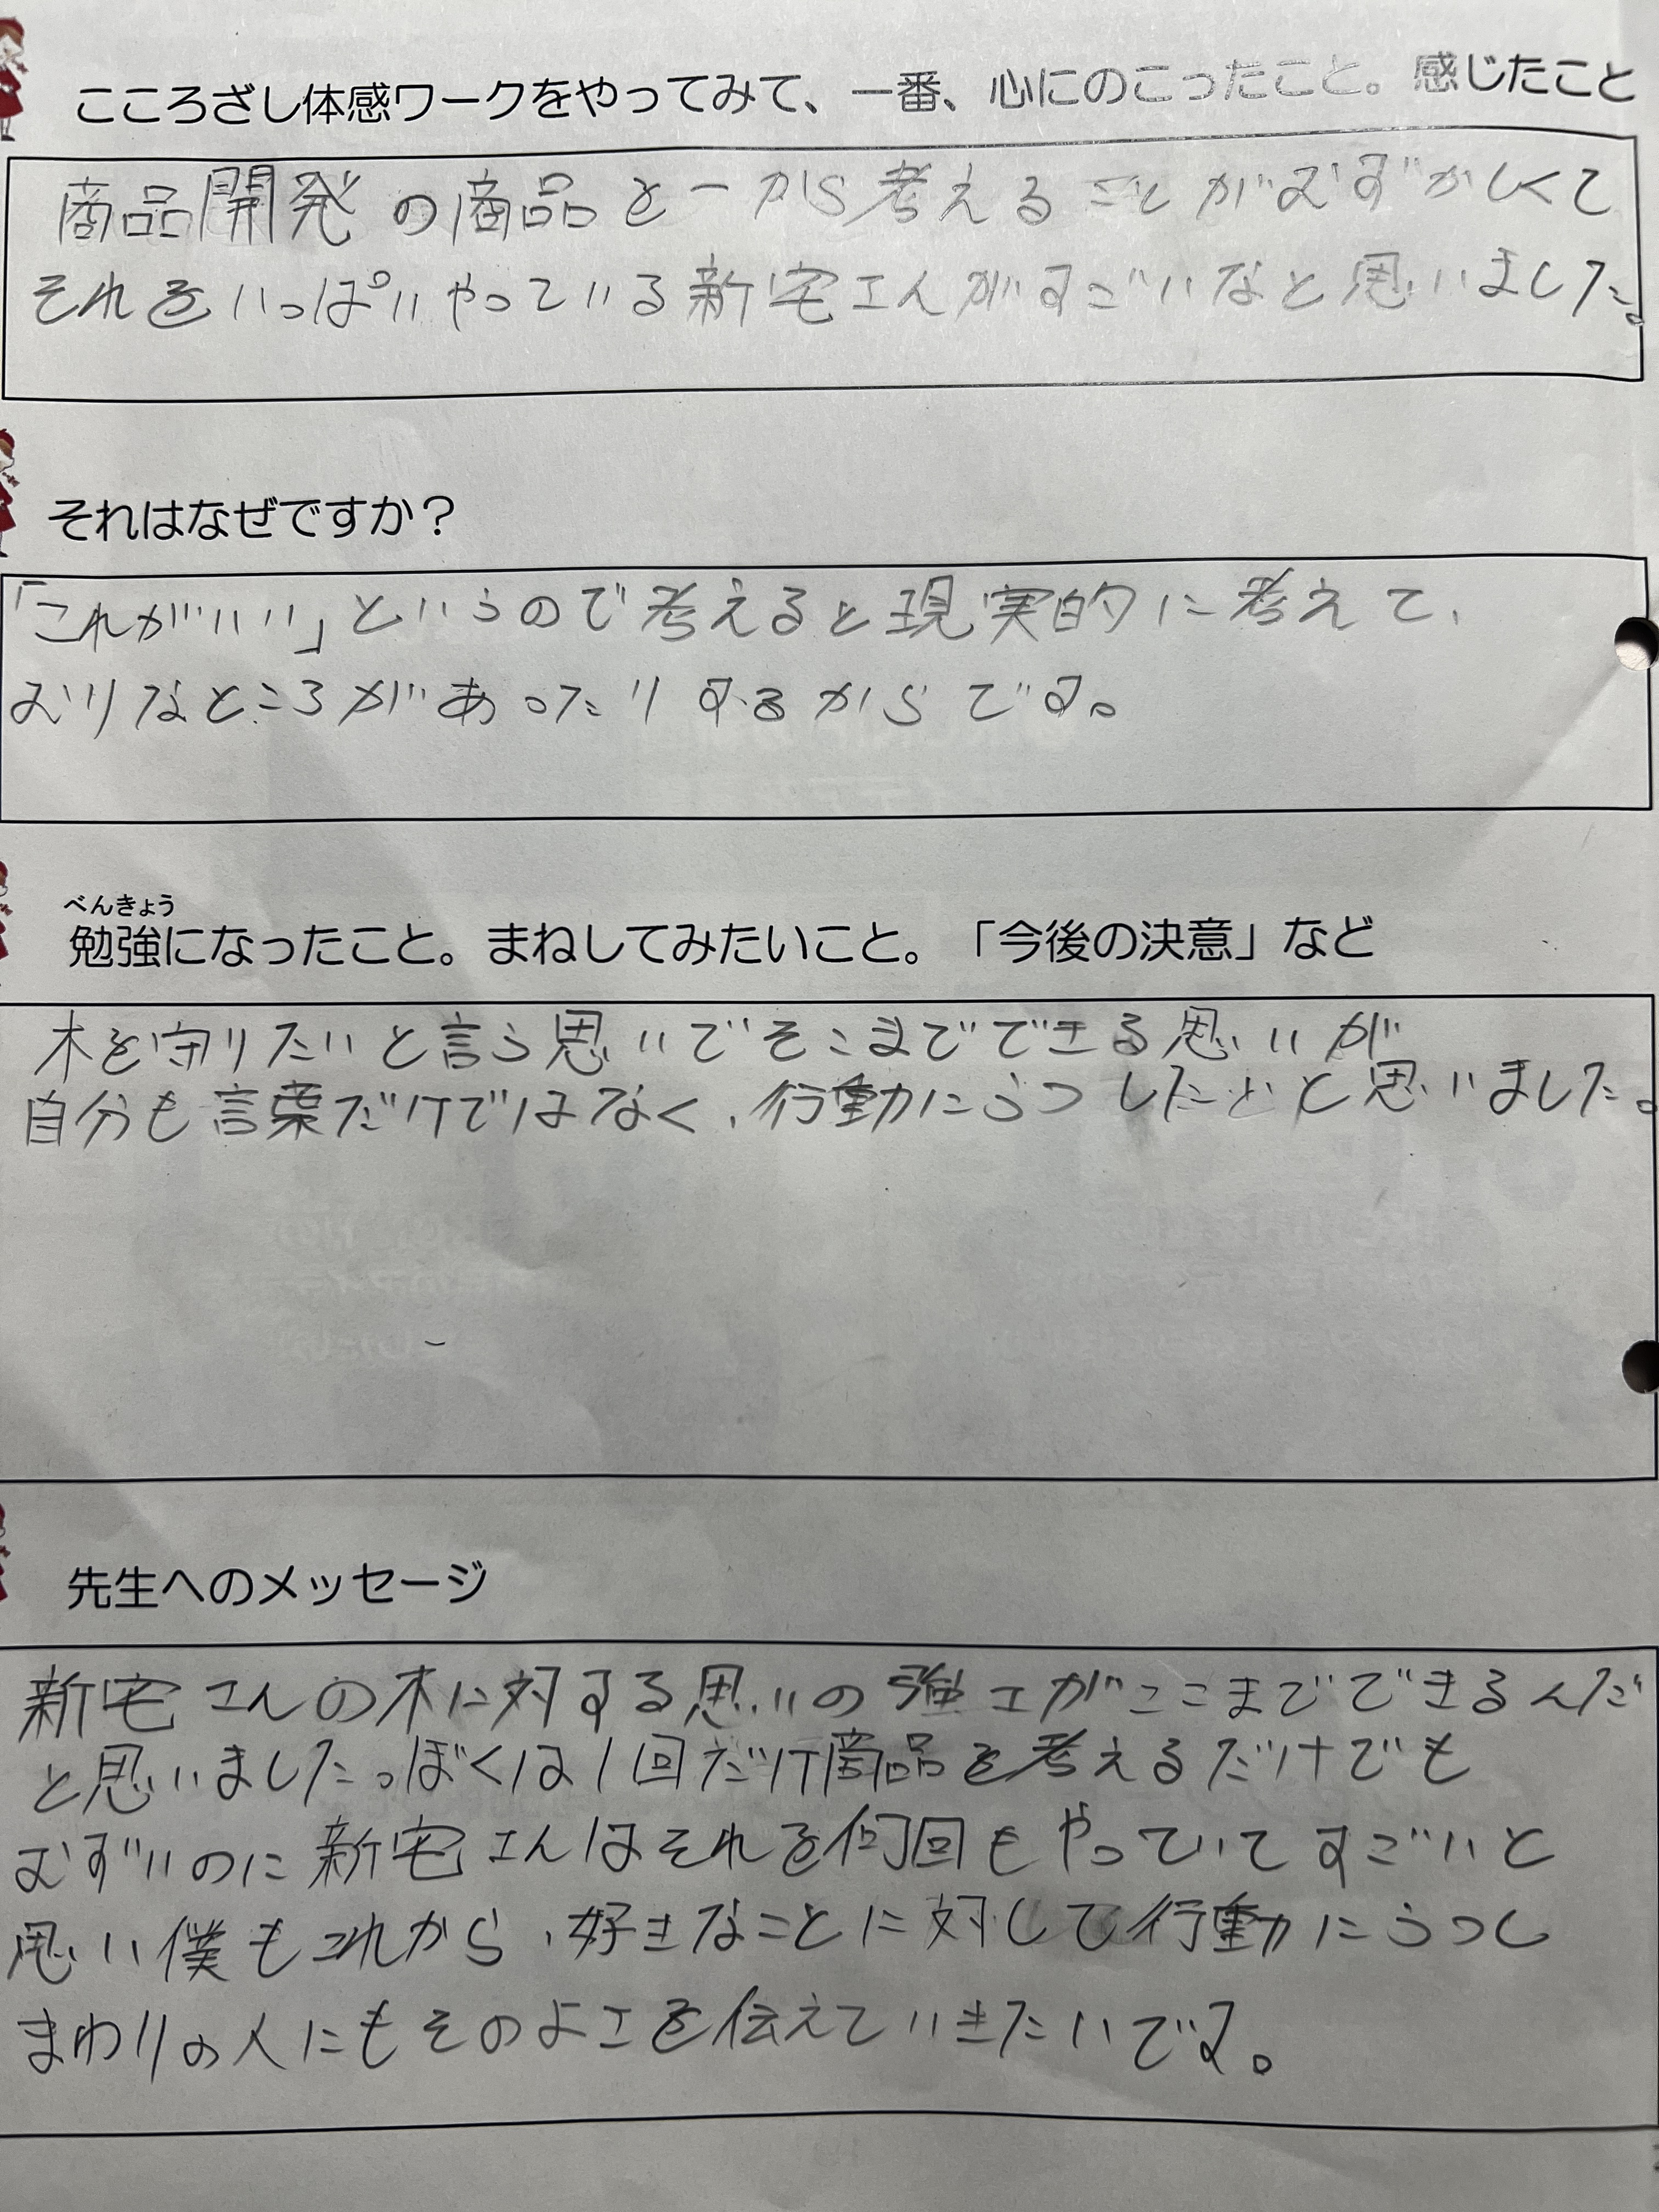 こころざし体感ワークをやってみて、一番、心にのこったこと。感じたこと
商品開発の商品を一から考えることがむずかしくて
それをいっぱいやっている新宅さんがすごいなと思いました。
それはなぜですか？
「これがいい」というので考えると現実的に考えて、
むりなところがあったりするからです。
べんきょう
勉強になったこと。まねしてみたいこと。「今後の決意」など
木を守りたいと言う思いでそこまでできる思いが
自分も言葉だけではなく、行動にうつしたいと思いました。
先生へのメッセージ
新宅さんの木に対する思いの強さがここまでできるんだ
と思いました。ぼくは1回だけ商品を考えるだけでも
むずいのに新宅さんはそれを何回もやっていてすごいと
思い僕もこれから、好きなことに対して行動にうつし
まわりの人にもそのよさを伝えていきたいです。